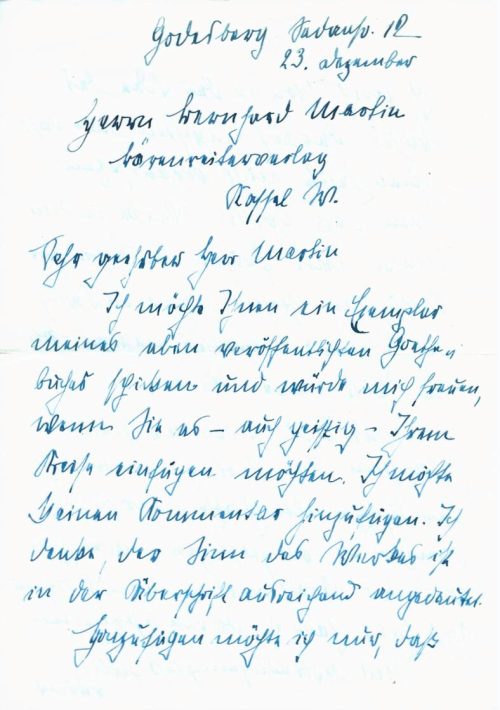 Godesberg Sedanstr. 12
23. Dezember
Herrn Bernhard Martin
Bärenreiterverlag
Kassel W.
Sehr geehrter Herr Martin
Ich möchte Ihnen ein Exemplar
meines eben veröffentlichten Goethe-
buches schicken und würde mich freuen,
wenn Sie es – auch geistig – Ihrem
Kreise einfügen möchten. Ich möchte
keinen Kommentar hinzufügen. Ich
denke, der Sinn des Werkes ist
in der Überschrift ausreichend angedeutet.
Hinzufügen möchte ich nur, daß